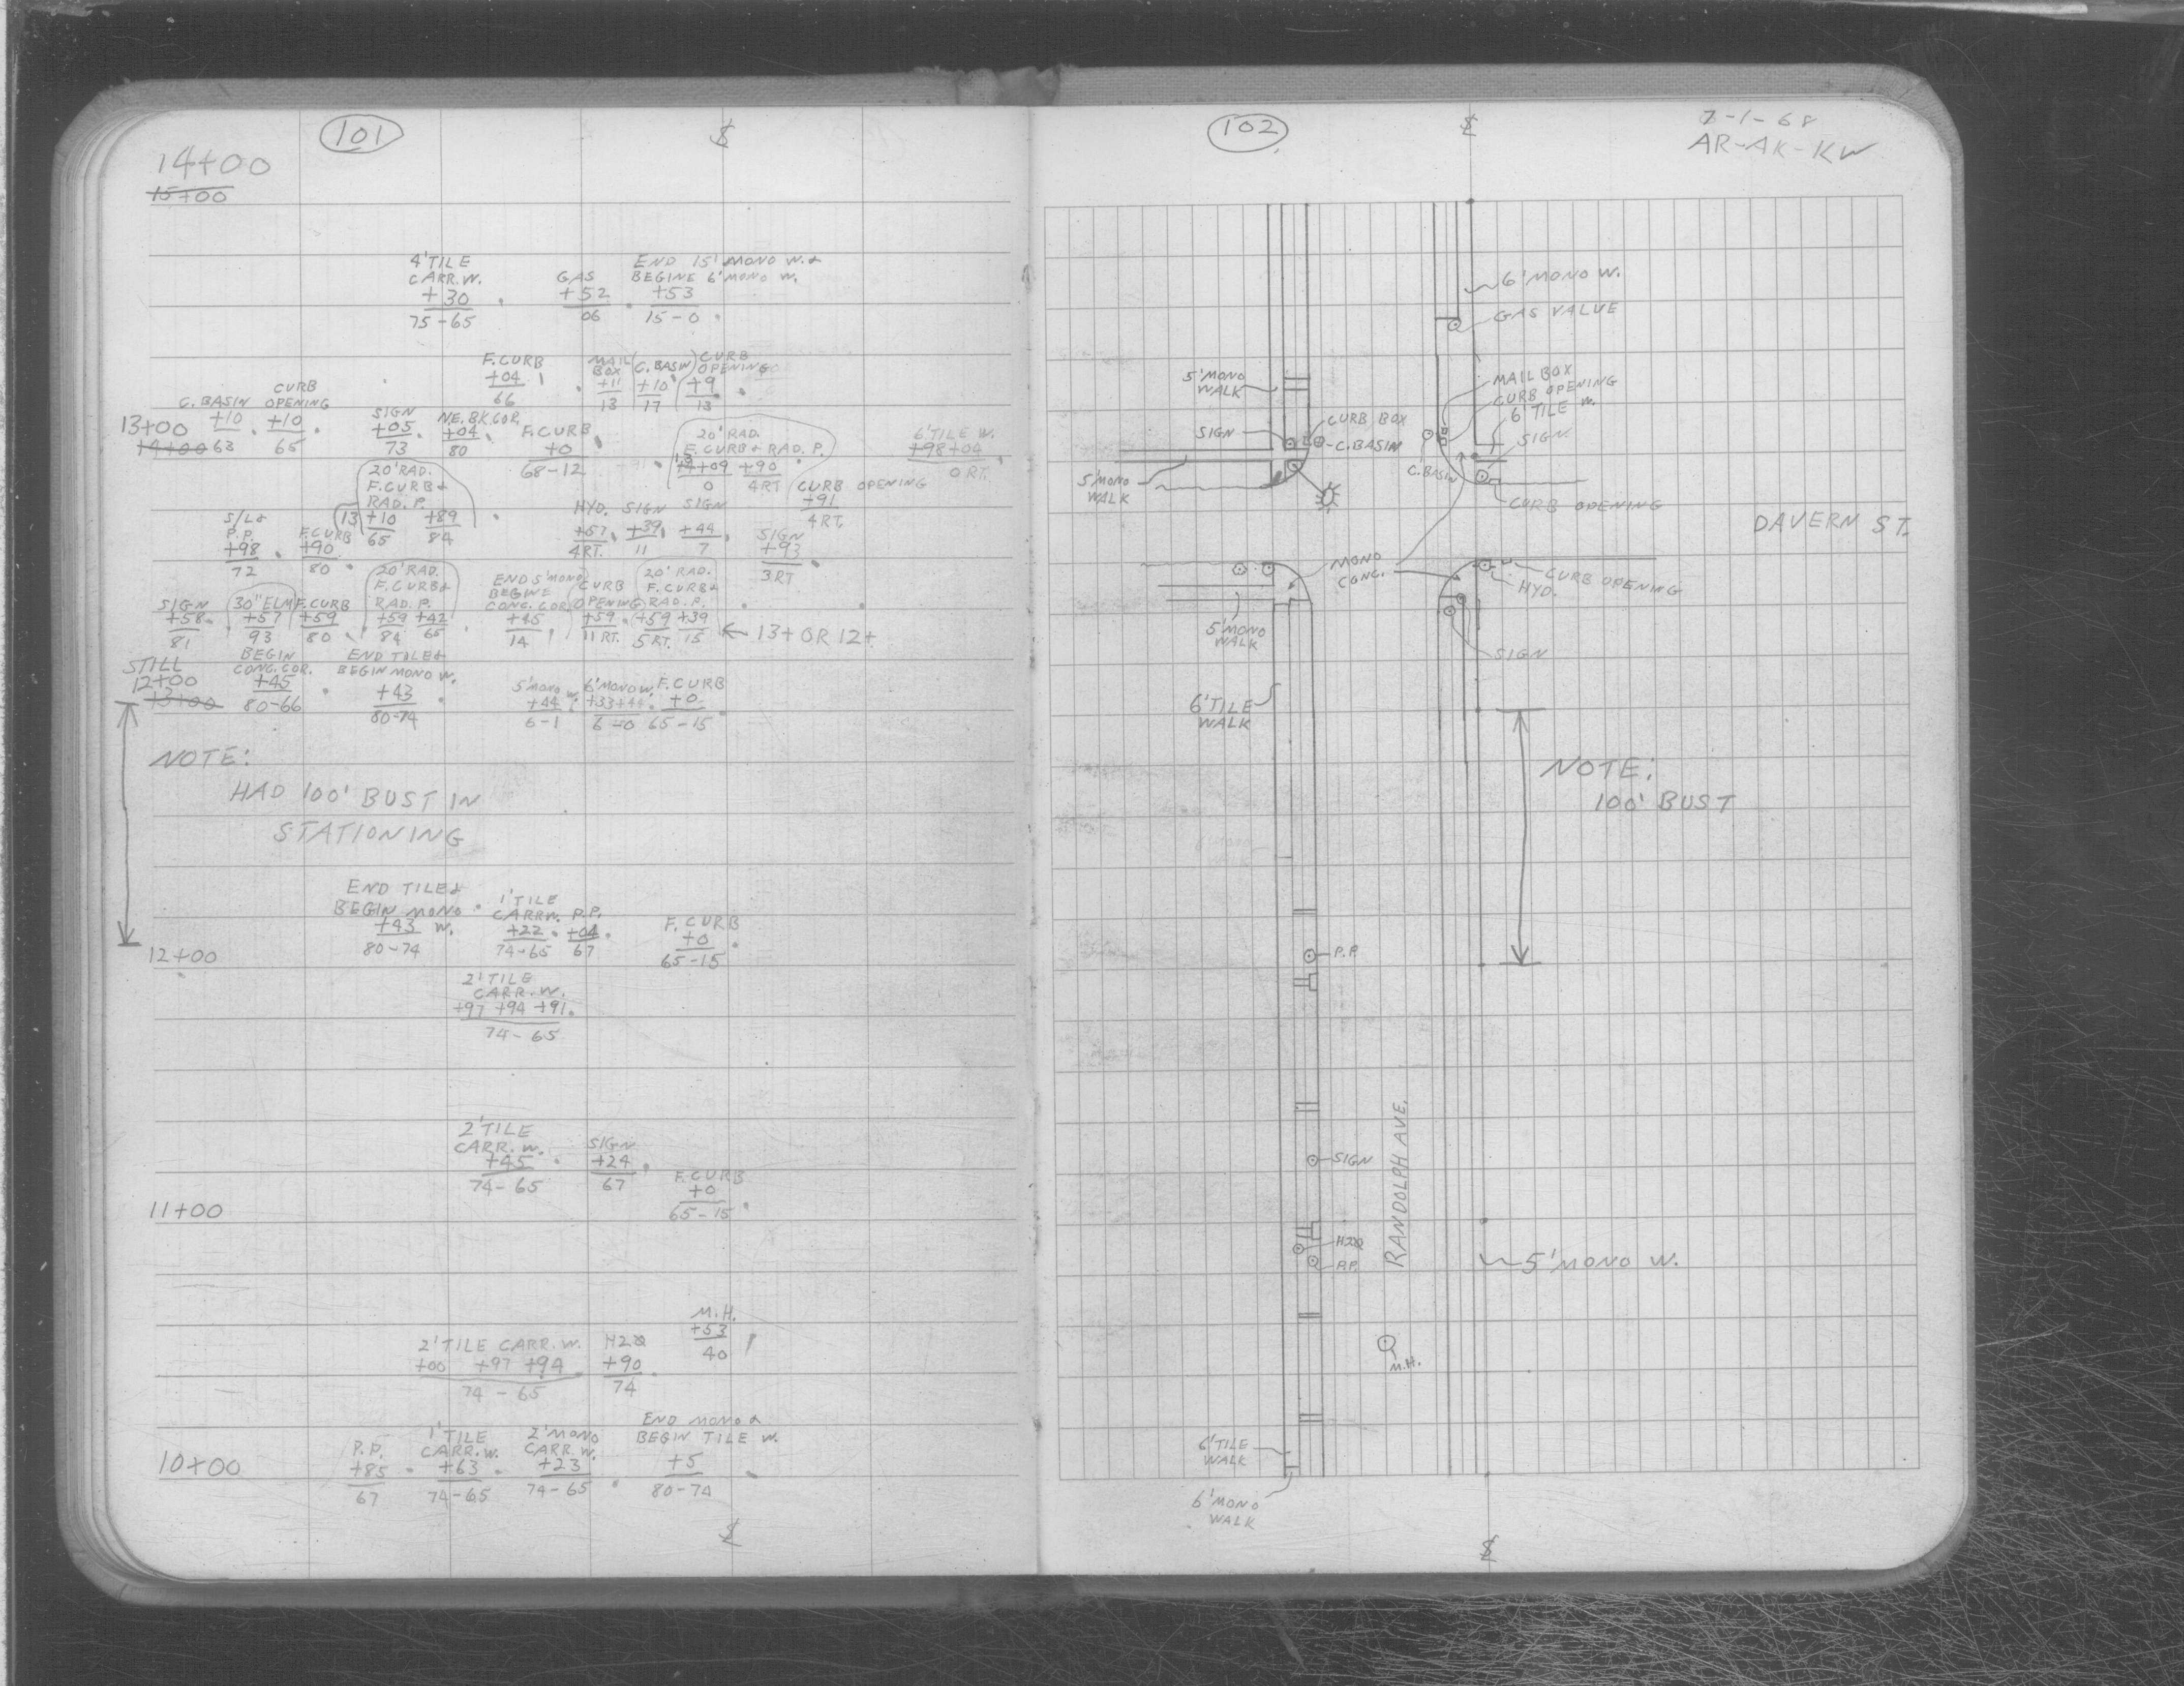 101
14+00
15+00
4' TILE
CARR. W.
+30
75-65
GAS
+52
06
END 15' MONO W. &
BEGINE 6' MONO W.
+53
15-0
F. CURB
+04
66
MAIL
BOX
+11
13
C. BASIN
+10
17
CURB
OPENING
+9
13
13+00
14+00
C. BASIN
+10
63
CURB
OPENING
+10
65
SIGN
+05
73
NE. BK. COR.
+04
80
F. CURB
+0
68-12
20' RAD.
F. CURB & RAD. P.
+09 +90
0 4RT
6' TILE W.
+98+04
0 RT.
CURB OPENING
+91
4 RT.
S/L &
P.P.
+98
72
F. CURB
+90
80
20' RAD.
F. CURB &
RAD. P.
13 +10 +89
65 84
HYD.
+57
4RT.
SIGN
+39
11
SIGN
+44
7
SIGN
+93
3 RT
SIGN
+58
81
30" ELM
+57
93
F. CURB
+59
80
20' RAD.
F. CURB &
RAD. P.
+59 +42
84 65
END 5' MONO
BEGINE
CONC. COR.
+45
14
CURB
OPENING
+59
11 RT.
20' RAD.
F. CURB &
RAD. P.
+59 +39
5 RT. 15
← 13+ OR 12+
STILL
12+00
13+00
BEGIN
CONC. COR.
+45
80-66
END TILE &
BEGIN MONO W.
+43
80-74
5' MONO W.
+44
6-1
6' MONO W.
+33+44
6-0
F. CURB
+0
65-15
NOTE:
HAD 100' BUST IN
STATIONING
END TILE &
BEGIN MONO W.
+43
80-74
1' TILE
CARR W.
+22
74-65
P.P.
+04
67
F. CURB
+0
65-15
12+00
2' TILE
CARR. W.
+97 +94 +91
74-65
2' TILE
CARR. W.
+45
74-65
SIGN
+24
67
F. CURB
+0
65-15
11+00
M.H.
+53
40
2' TILE CARR. W.
+00 +97 +94
74-65
H20
+90
74
10+00
P.P.
+85
67
1' TILE
CARR. W.
+63
74-65
2' MONO
CARR. W.
+23
74-65
END MONO &
BEGIN TILE W.
+5
80-74
102
7-1-68
AR-AK-KW
6' MONO W.
GAS VALUE
5' MONO
WALK
MAIL BOX
CURB OPENING
6' TILE W.
CURB BOX
SIGN
C. BASIN
SIGN
C. BASIN
5' MONO
WALK
CURB OPENING
DAVERN ST.
MONO
CONC.
CURB OPENING
HYD.
5' MONO
WALK
SIGN
6' TILE
WALK
NOTE:
100' BUST
P.P.
SIGN
RANDOLPH AVE.
H20
P.P.
5' MONO W.
M.H.
6' TILE
WALK
6' MONO
WALK